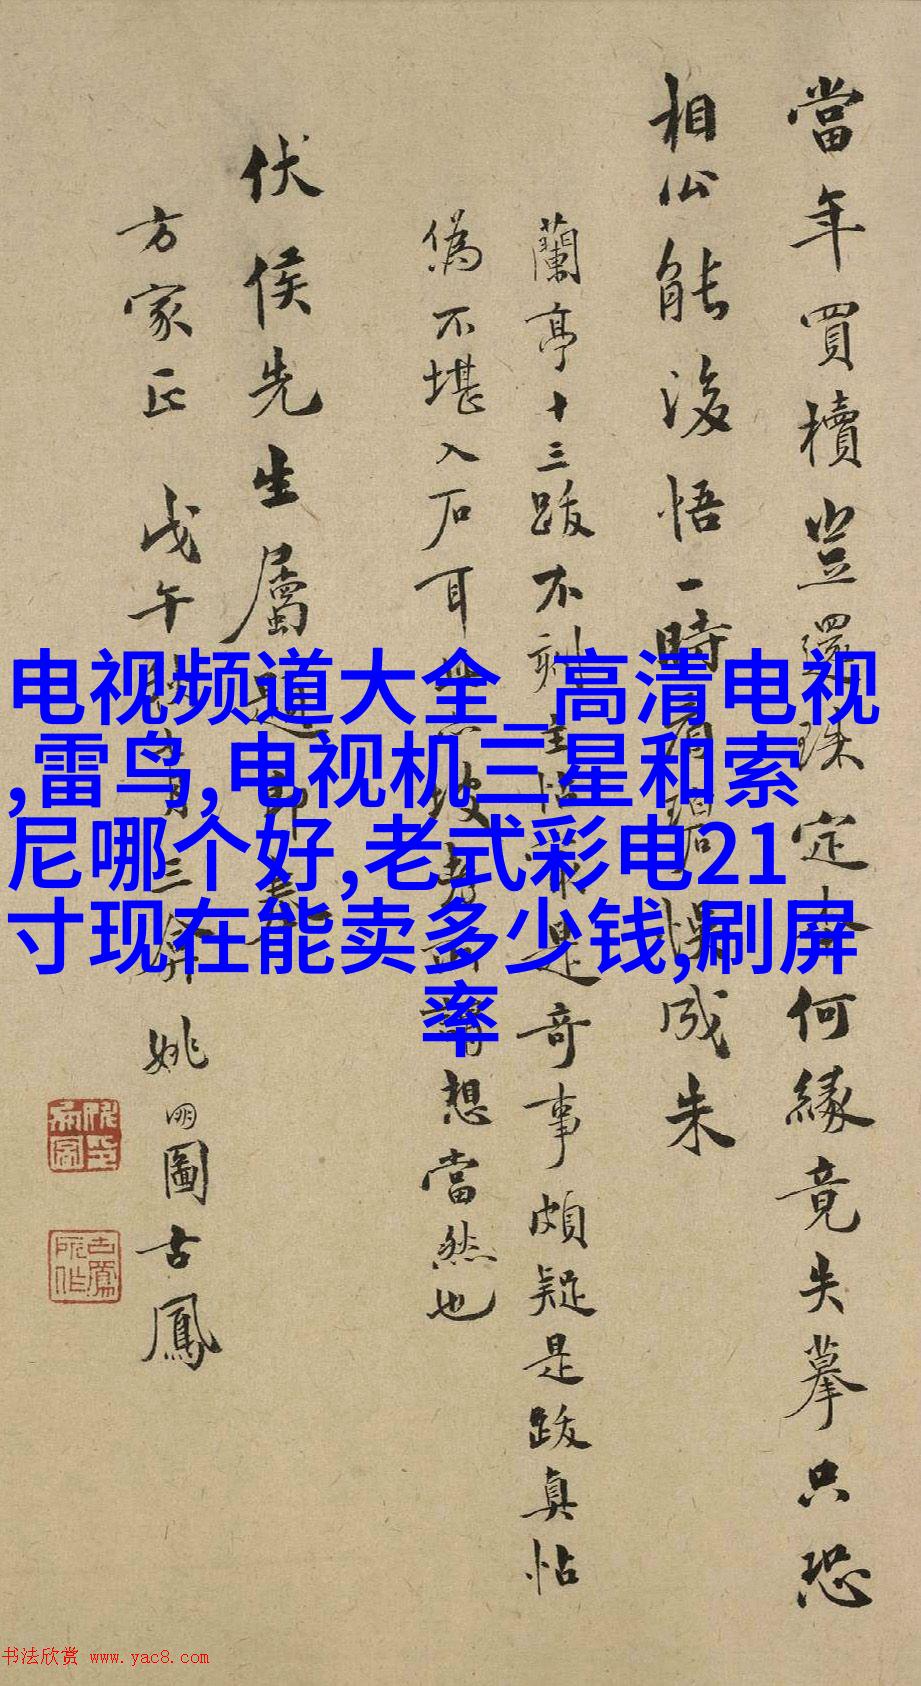 當年買櫝豈還珠定本何緣竟失摹只恐
相公能後悟一時看碧悮成朱
蘭亭十三跋不刻主帖是奇事頗疑是跋真帖
偽不堪入石耳坡謂想當然也
伏侯先生屬題即奉
方家正 戊午秋月三 姚朋圖古鳳
电视频道大全_高清电视
,雷鸟,电视机三星和索
尼哪个好,老式彩电21
寸现在能卖多少钱,刷屏
率
书法欣赏 www.yac8.com